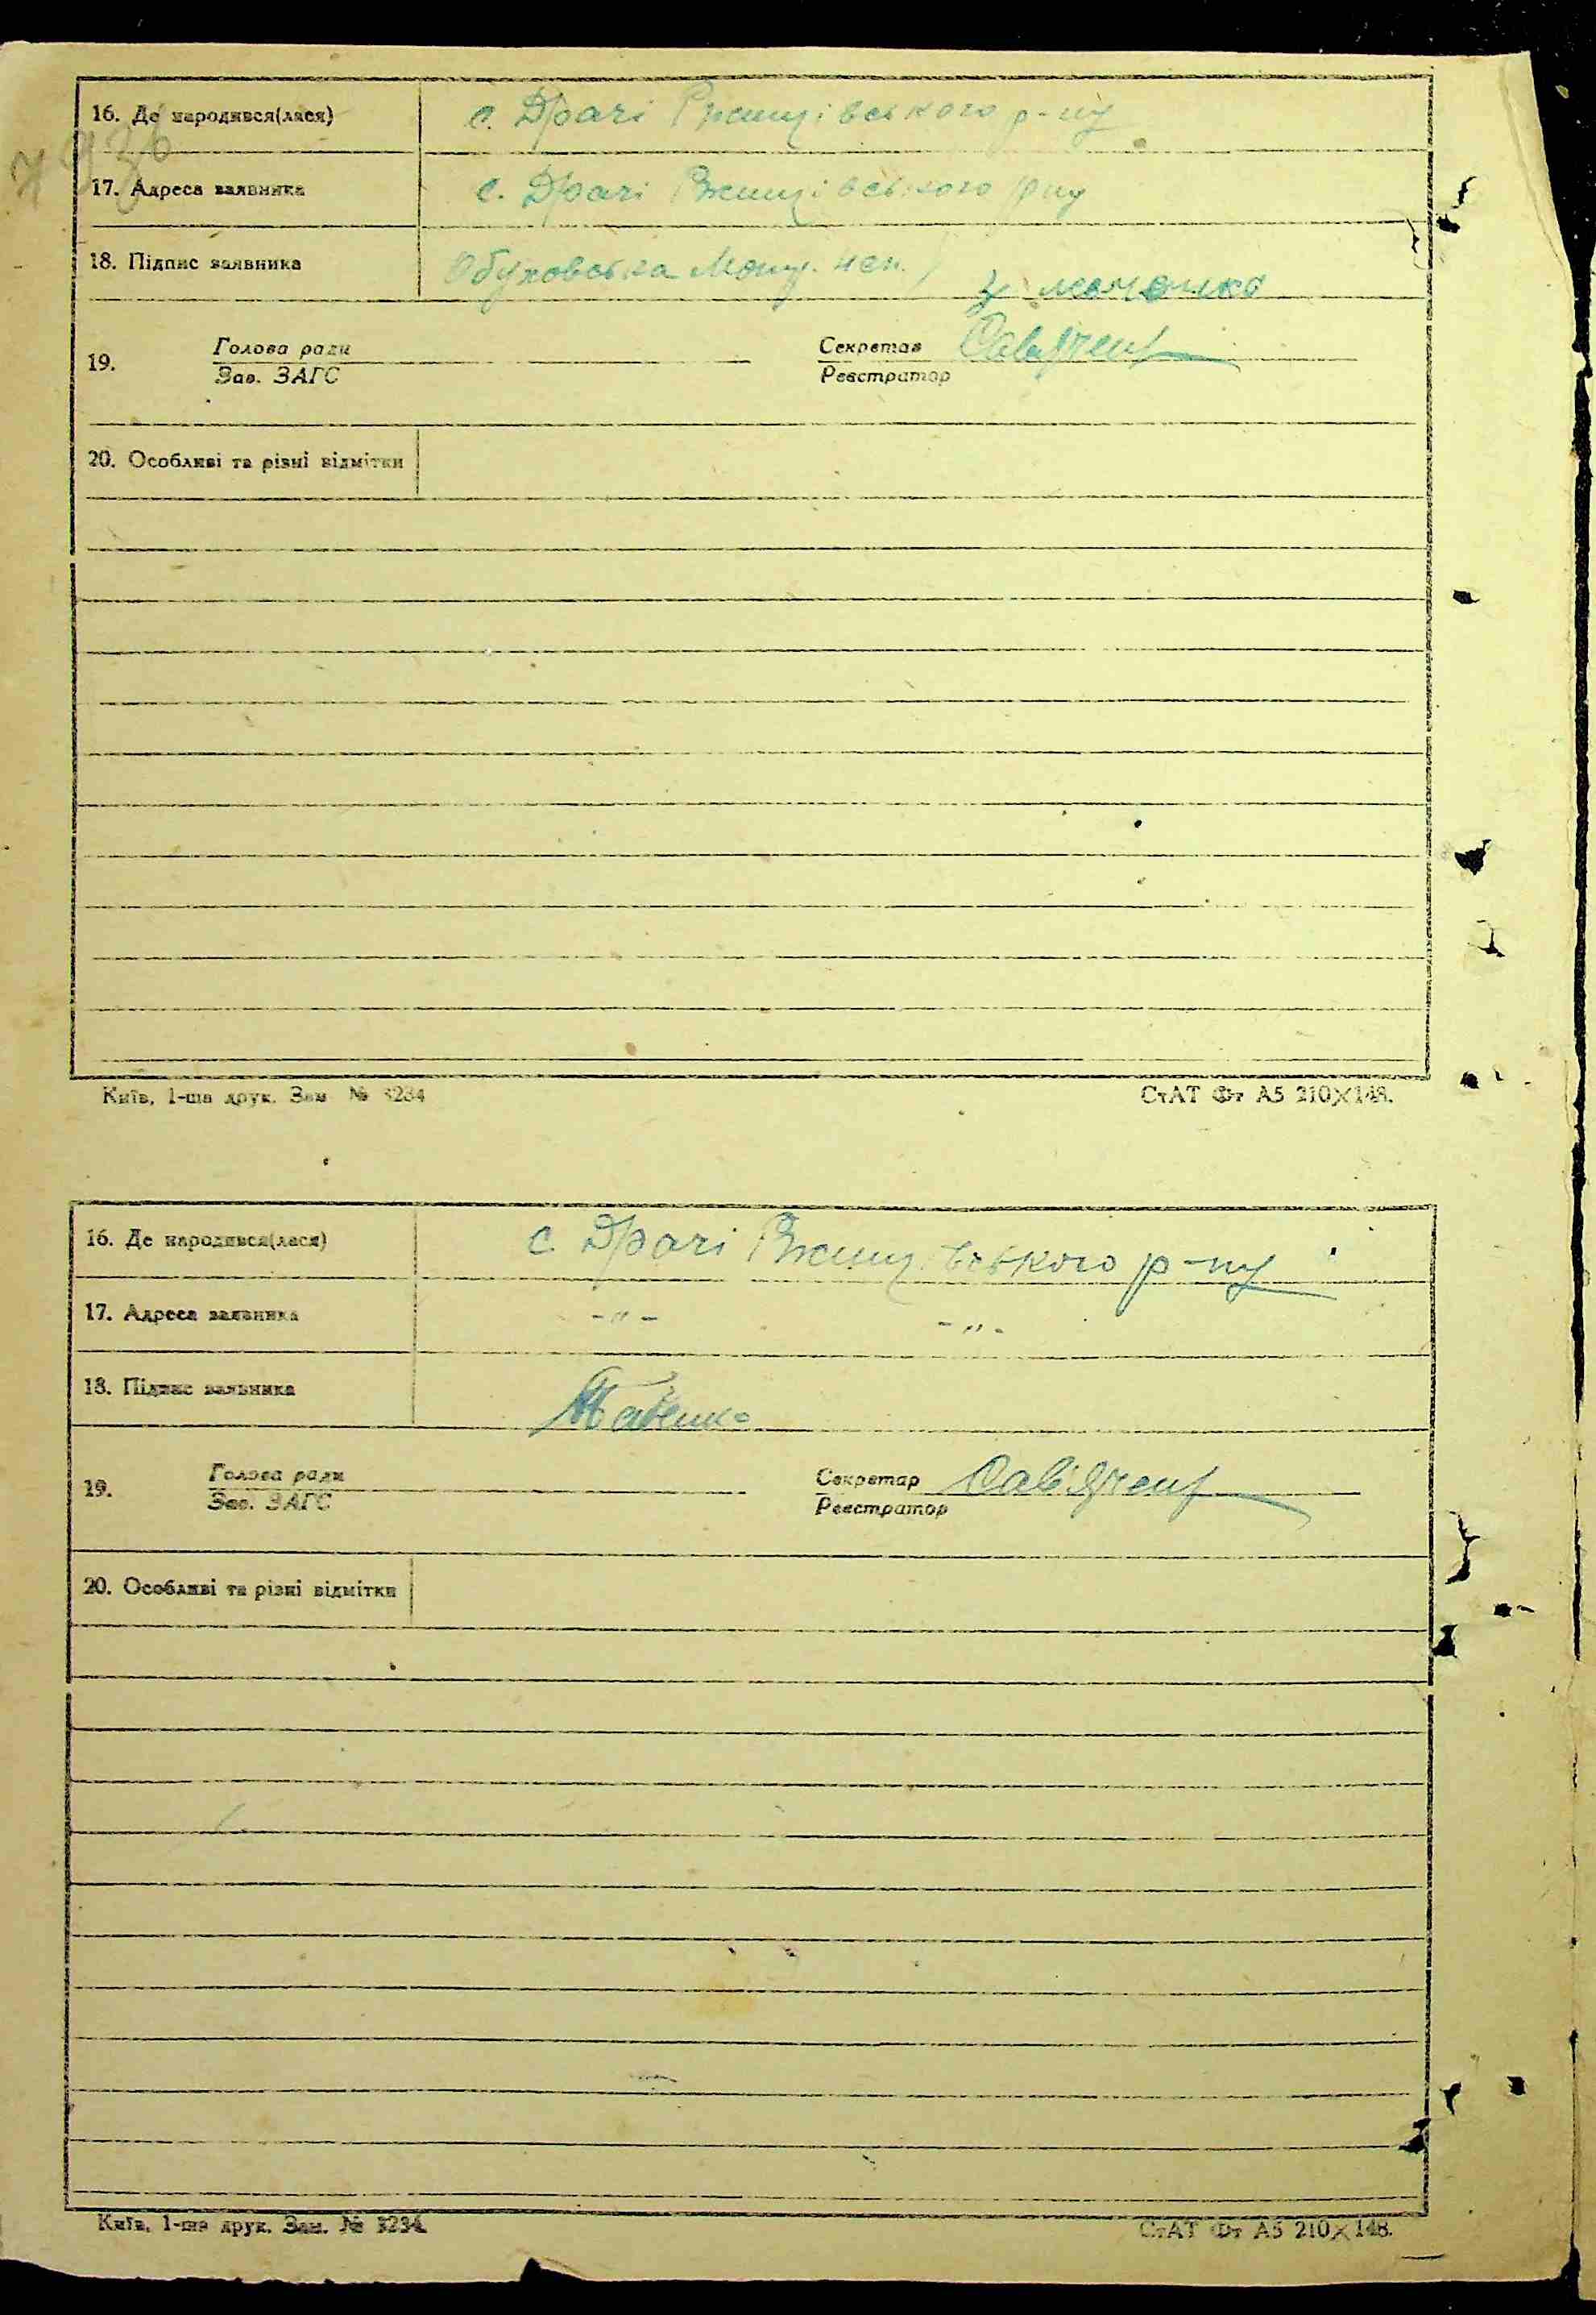 16. Де народився(лася) с. Драчі Ржищівського р-ну
17. Адреса заявника с. Драчі Ржищівського р ну
18. Підпис заявника Обуховська
19. Голова ради Секретар
Зав. ЗАГС Реєстратор
20. Особливі та різні відмітки
Київ, 1-ша друк. Зам № 3234 СтАТ Фт А5 210×148.
16. Де народився(лася) с. Драчі Ржищівського р-ну
17. Адреса заявника -"- -"-
18. Підпис заявника
19. Голова ради Секретар
Зав. ЗАГС Реєстратор
20. Особливі та різні відмітки
Київ, 1-ша друк. Зам. № 3234. СтАТ Фт А5 210×148.